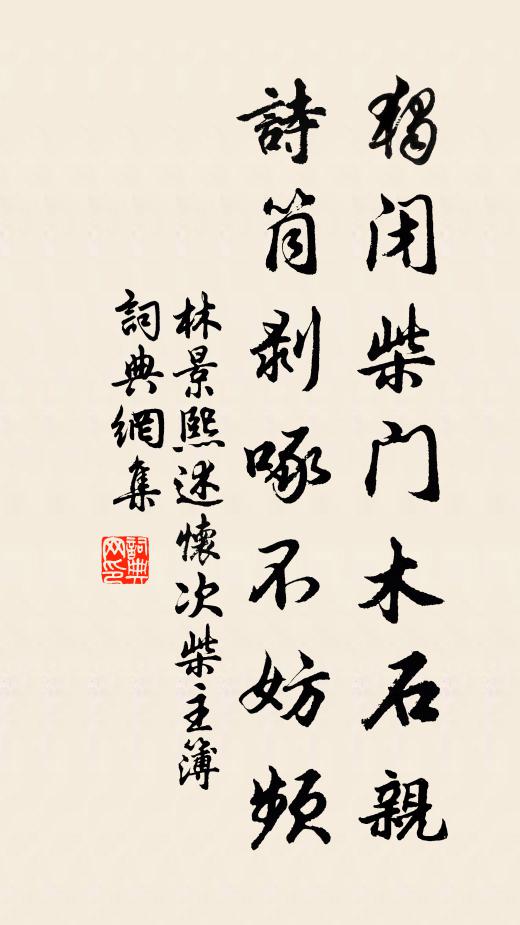 獨閉柴門木石親
詩筒剝啄不妨頻
林景熙述懷次柴主簿
詞典網集
詞典
网印